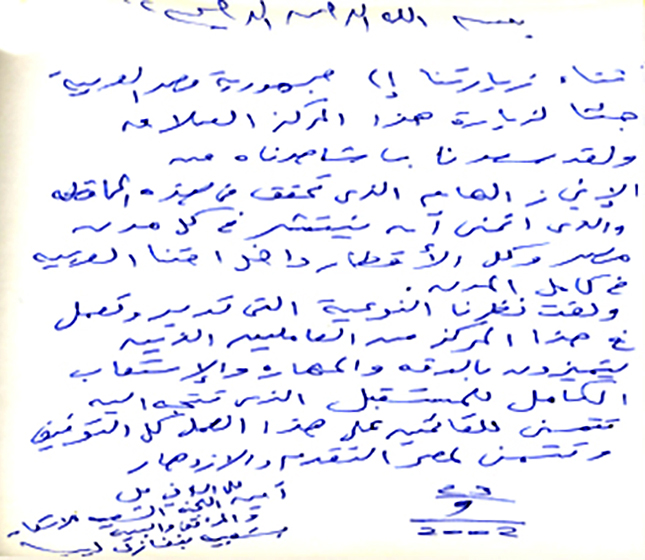 بسم الله الرحمن الرحيم
أثناء زيارتنا إلى جمهورية مصر العربية
جئنا لزيارة هذا المركز العلامه
ولقد سعدنا بما شاهدناه من
الإنجاز الهام الذى تحقق فى هذه المحافظه
والذى اتمنى أن ينتشر فى كل مدن
مصر وكل الأقطار داخل امتنا العربيه
فى كامل المدن.
ولفت نظرنا النوعية التى تدير وتعمل
فى هذا المركز من العاملين الذين
يتميزون بالدقه والمهاره والإستيعاب
الكامل للمستقبل الذى تتجه اليه
نتمنى للقائمين على هذا العمل كل التوفيق
ونتمنى لمصر التقدم والازدهار
أمين اللجنة الشعبيه
والمرافق والبيئه
شعبية بنغازى ليبيا
٢٦
٩
٢٠٠٢